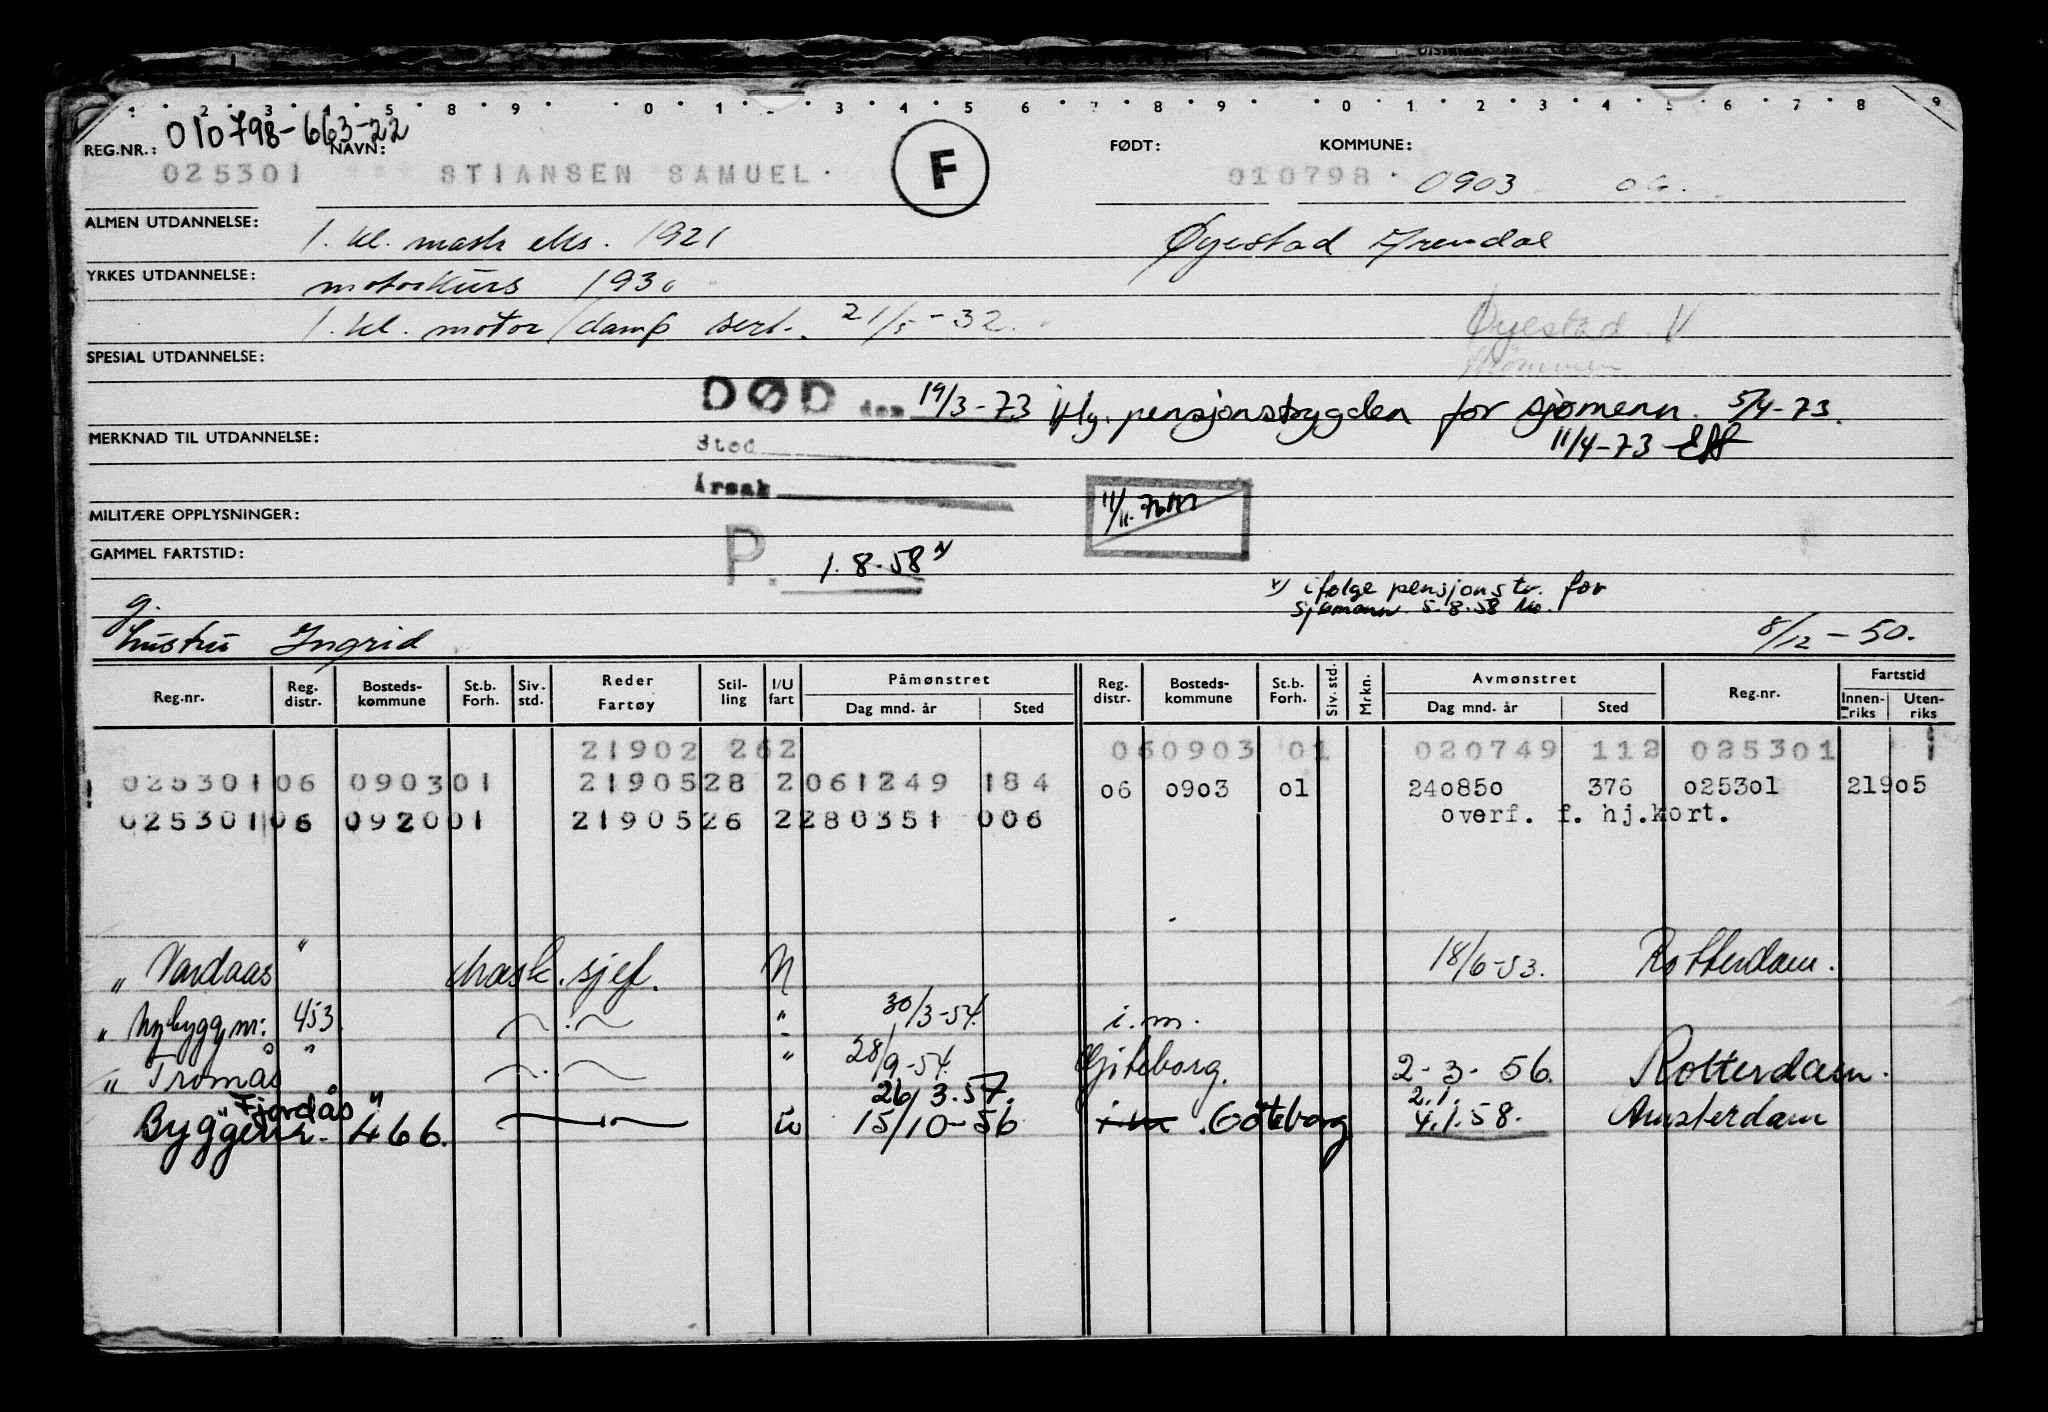 1 2 3 4 5 8 9 0 1 3 4 5 6 7 8 9 0 1 2 3 4 5 6 7 8 9
REG.NR.: 010798-663-22 NAVN: FØDT: KOMMUNE:
025301 STIANSEN SAMUEL F 010798 0903 06
ALMEN UTDANNELSE: 1. kl. mask eks. 1921 Øyestad Arendal
YRKES UTDANNELSE: motorkurs 1930
1. kl. motor/damp sert. 21/5-32. Øyestad V
SPESIAL UTDANNELSE: Strømmen
DØD den 19/3-73 iflg. pensjonstrygden for sjømenn. 5/4-73.
MERKNAD TIL UTDANNELSE: Sted 11/4-73
Årsak
MILITÆRE OPPLYSNINGER:
GAMMEL FARTSTID: P. 1.8.58 x)
x) ifølge pensjonstr. for
sjømenn 5.8.58
g.
hustru Ingrid 8/12-50.
Reg.nr. Reg. distr. Bosteds-kommune St.b. Forh. Siv. std. Reder Fartøy Stil-ling I/U fart Påmønstret Dag mnd. år Sted Reg. distr. Bosteds-kommune St.b. Forh. Siv. std. Mrkn. Avmønstret Dag mnd. år Sted Reg.nr. Fartstid Innen-riks Uten-riks
21902 262 060903 01 020749 112 025301 1
025301 06 0903 01 21905 28 2 061249 184 06 0903 01 240850 376 025301 21905
025301 06 0920 01 21905 26 2 280351 006 overf. f. hj.kort.
" Vardaas " mask. sjef. U 18/6-53. Rotterdam.
" Nybygg nr: 453 " 30/3-54. i.m.
" Tromås " " 28/9-54. Göteborg. 2-3-56. Rotterdam.
"Fjordås" 26/3.57. 2.1.
Byggenr. 466. U 15/10-56 i.m. Göteborg 4.1.58. Amsterdam